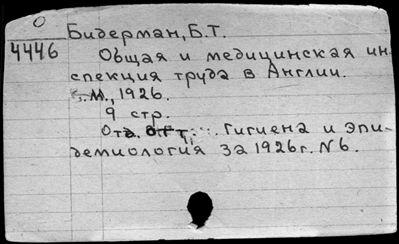 О
Бидерман, Б.Т.
4446
Общая и медицинская ин-
спекция труда в Англии.
М., 1926.
9 стр.
Отд. отт. Гигиена и эпи-
демиология за 1926г. N6.